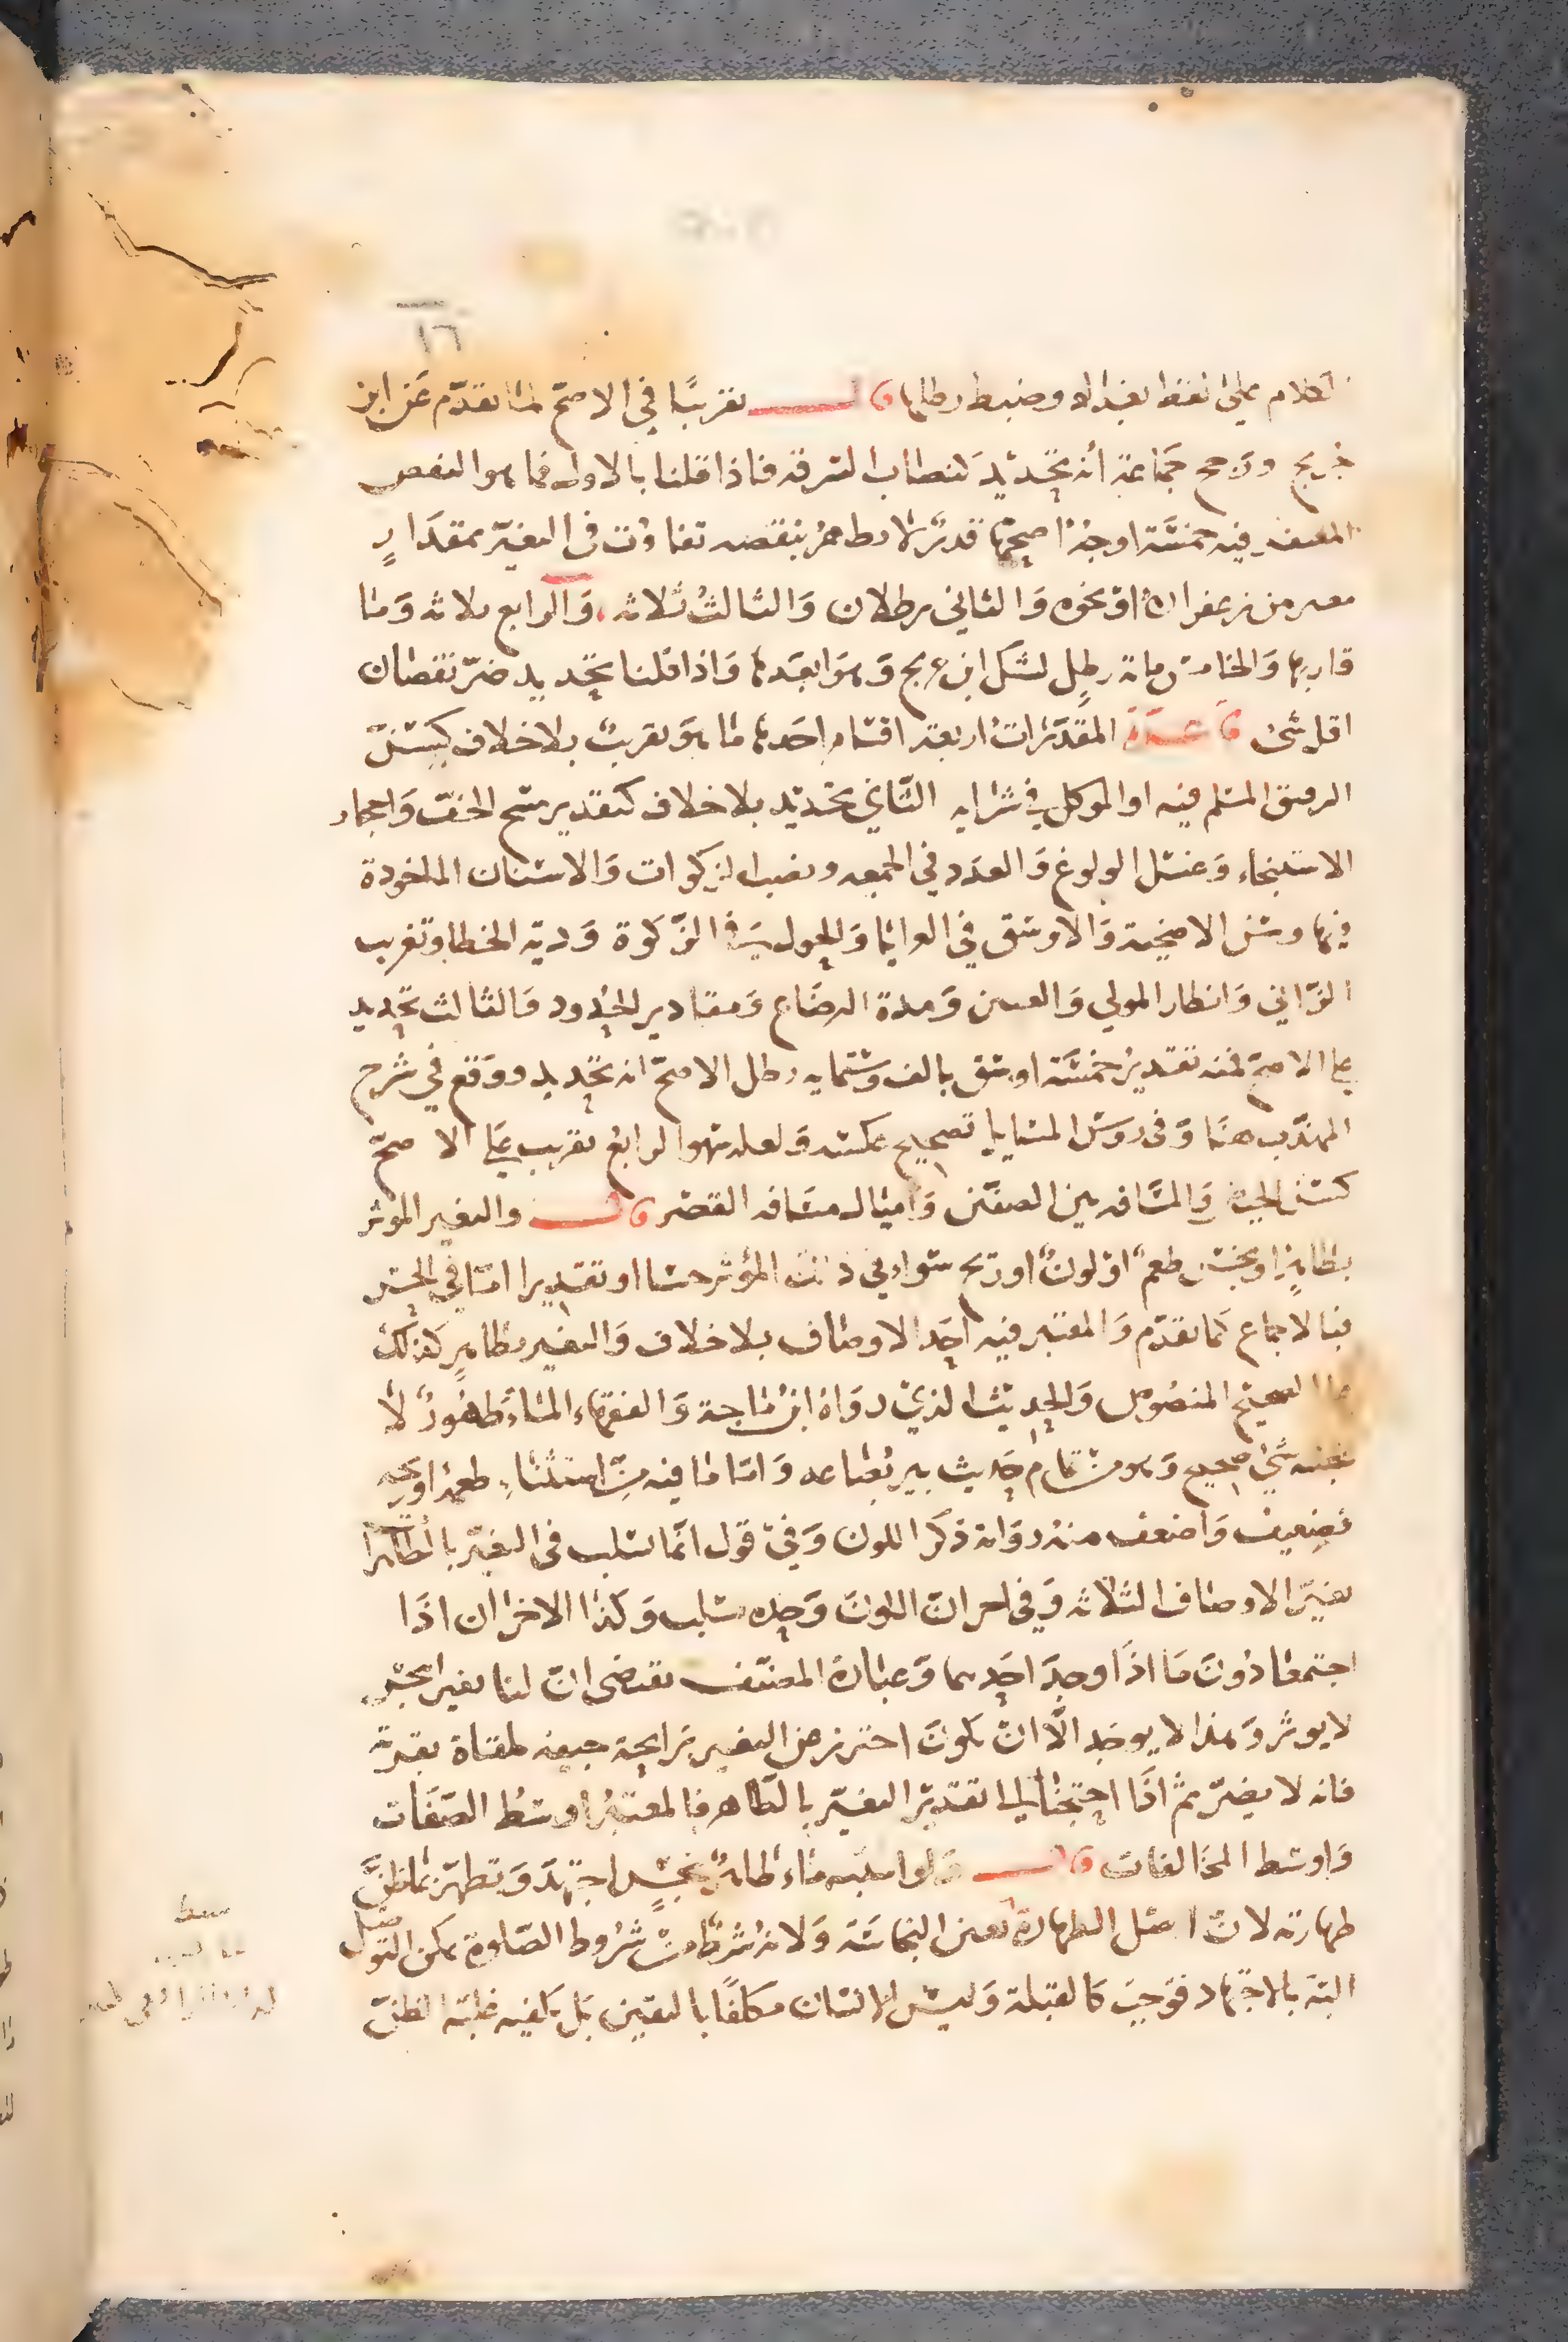 ١٦
الكلام على لفظ بغداد وضبط رطلها قال تقريبًا في الاصح لما تقدم عن ابن
جريج ورجح جماعة أنه تحديد كنصاب السرقة فاذا قلنا بالاول فما هو النقص
المعفو فيه خمسة اوجه اصحها قدر لا يظهر بنقصه تفاوت في التغير بمقدار
معين من زعفران او نحوه والثاني رطلان والثالث ثلاثه والرابع ثلاثه وما
قاربها والخامس مائة رطل لشك ابن جريج وهو ابعدها واذا قلنا تحديد ضر نقصان
اقل شئ قاعدة المقدرات اربعة اقسام احدها ما هو تقريب بلا خلاف كسن
الرقيق المسلم فيه او الموكل في شرايه الثاني تحديد بلا خلاف كتقدير مسح الخف واحجار
الاستنجاء وغسل الولوغ والعدد في الجمعه ونصب الزكوات والاسنان الماخوذة
فيها وسن الاضحية والاوسق في العرايا والحول في الزكوة ودية الخطا وتغريب
الزاني وانظار المولي والعنين ومدة الرضاع ومقادير الحدود والثالث تحديد
على الاصح فمنه تقدير خمسة اوسق بالف وستمايه رطل الاصح انه تحديد ووقع في شرح
المهذب هنا وفي روس المسايل تصحيح عكسه ولعله سهو الرابع تقريب على الاصح
كسن الحيض والمسافه بين الصفين واميال مسافه القصر قال والتغير الموثر
بطاهر او نجس طعم او لون او ريح سواء في ذلك المؤثر حسا او تقديرا اما في النجس
فبالاجماع كما تقدم والمعتبر فيه احد الاوصاف بلا خلاف والتغير بطاهر كذلك
على الصحيح المنصوص والحديث الذي رواه ابن ماجة والفقهاء الماء طهور لا
ينجسه شئ صحيح وهو من تمام حديث بير بضاعه واما ما فيه من استثناء طعمه او ريحه
فضعيف واضعف منه رواية ذكر اللون وفي قول انما يسلب في التغير بالطاهر
تغير الاوصاف الثلاثه وفي اخر ان اللون وحده يسلب وكذا الاخران اذا
اجتمعا دون ما اذا وجد احدهما وعبارة المصنف تقتضى ان لنا تغيرا بنجس
لا يوثر وهذا لا يوجد الا ان يكون احترز من التغير برايحة جيفه ملقاة بقربه
فانه لا يضر ثم اذا احتجنا الى تقدير التغير بالطاهر فالمعتبر اوسط الصفات
واوسط المخالفات قال ولو اشتبه ماء طاهر بنجس اجتهد وتطهر بما ظن
طهارته لان اصل الطهارة تعين النجاسة ولانه شرط من شروط الصلوة يمكن التوصل
اليه بالاجتهاد فوجب كالقبلة وليس الانسان مكلفا باليقين بل يكفيه غلبة الظن